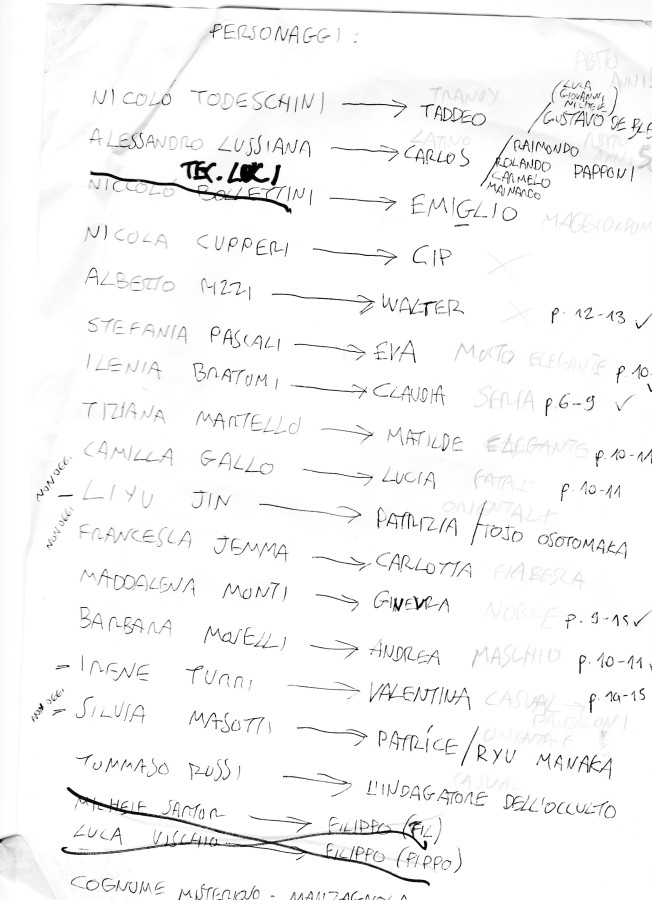 PERSONAGGI:
NICOLO TODESCHINI → TADDEO / GUSTAVO DE
(LUCA
GIOVANNI
MICHELE)
ALESSANDRO LUSSIANA → CARLOS / RAIMONDO
ROLANDO PAPPONI
CARMELO
MAINARDO
TEC. LUCI
NICCOLO BOLLETTINI → EMIGLIO
NICOLA CUPPERI → GIP
ALBERTO → WALTER p. 12-13 ✓
STEFANIA PASCALI → EVA MOLTO ELEGANTE p. 10-
ILENIA BRATUMI → CLAUDIA SERIA p. 6-9 ✓
TIZIANA MARTELLO → MATILDE ELEGANTE p. 10-11
CAMILLA GALLO → LUCIA FATALE p. 10-11
NON OGGI - LIYU JIN → PATRIZIA / TOJO OSOTOMAKA ORIENTALE
NON OGGI FRANCESCA JEMMA → CARLOTTA FIABESCA
MADDALENA MONTI → GINEVRA NOBILE p. 9-15 ✓
BARBARA MORELLI → ANDREA MASCHIO p. 10-11 ✓
- IRENE TURRI → VALENTINA CASUAL → PANTALONI p. 14-15
NON OGGI - SILVIA MASOTTI → PATRÍCE / RYU MANAKA ORIENTALE
TOMMASO RUSSI → L'INDAGATORE DELL'OCCULTO CASUAL
MICHELE SARTOR → FILIPPO (FIL)
LUCA VISCHIO → FILIPPO (PIPPO)
COGNOME MISTERIOSO - MANZAGNOLA